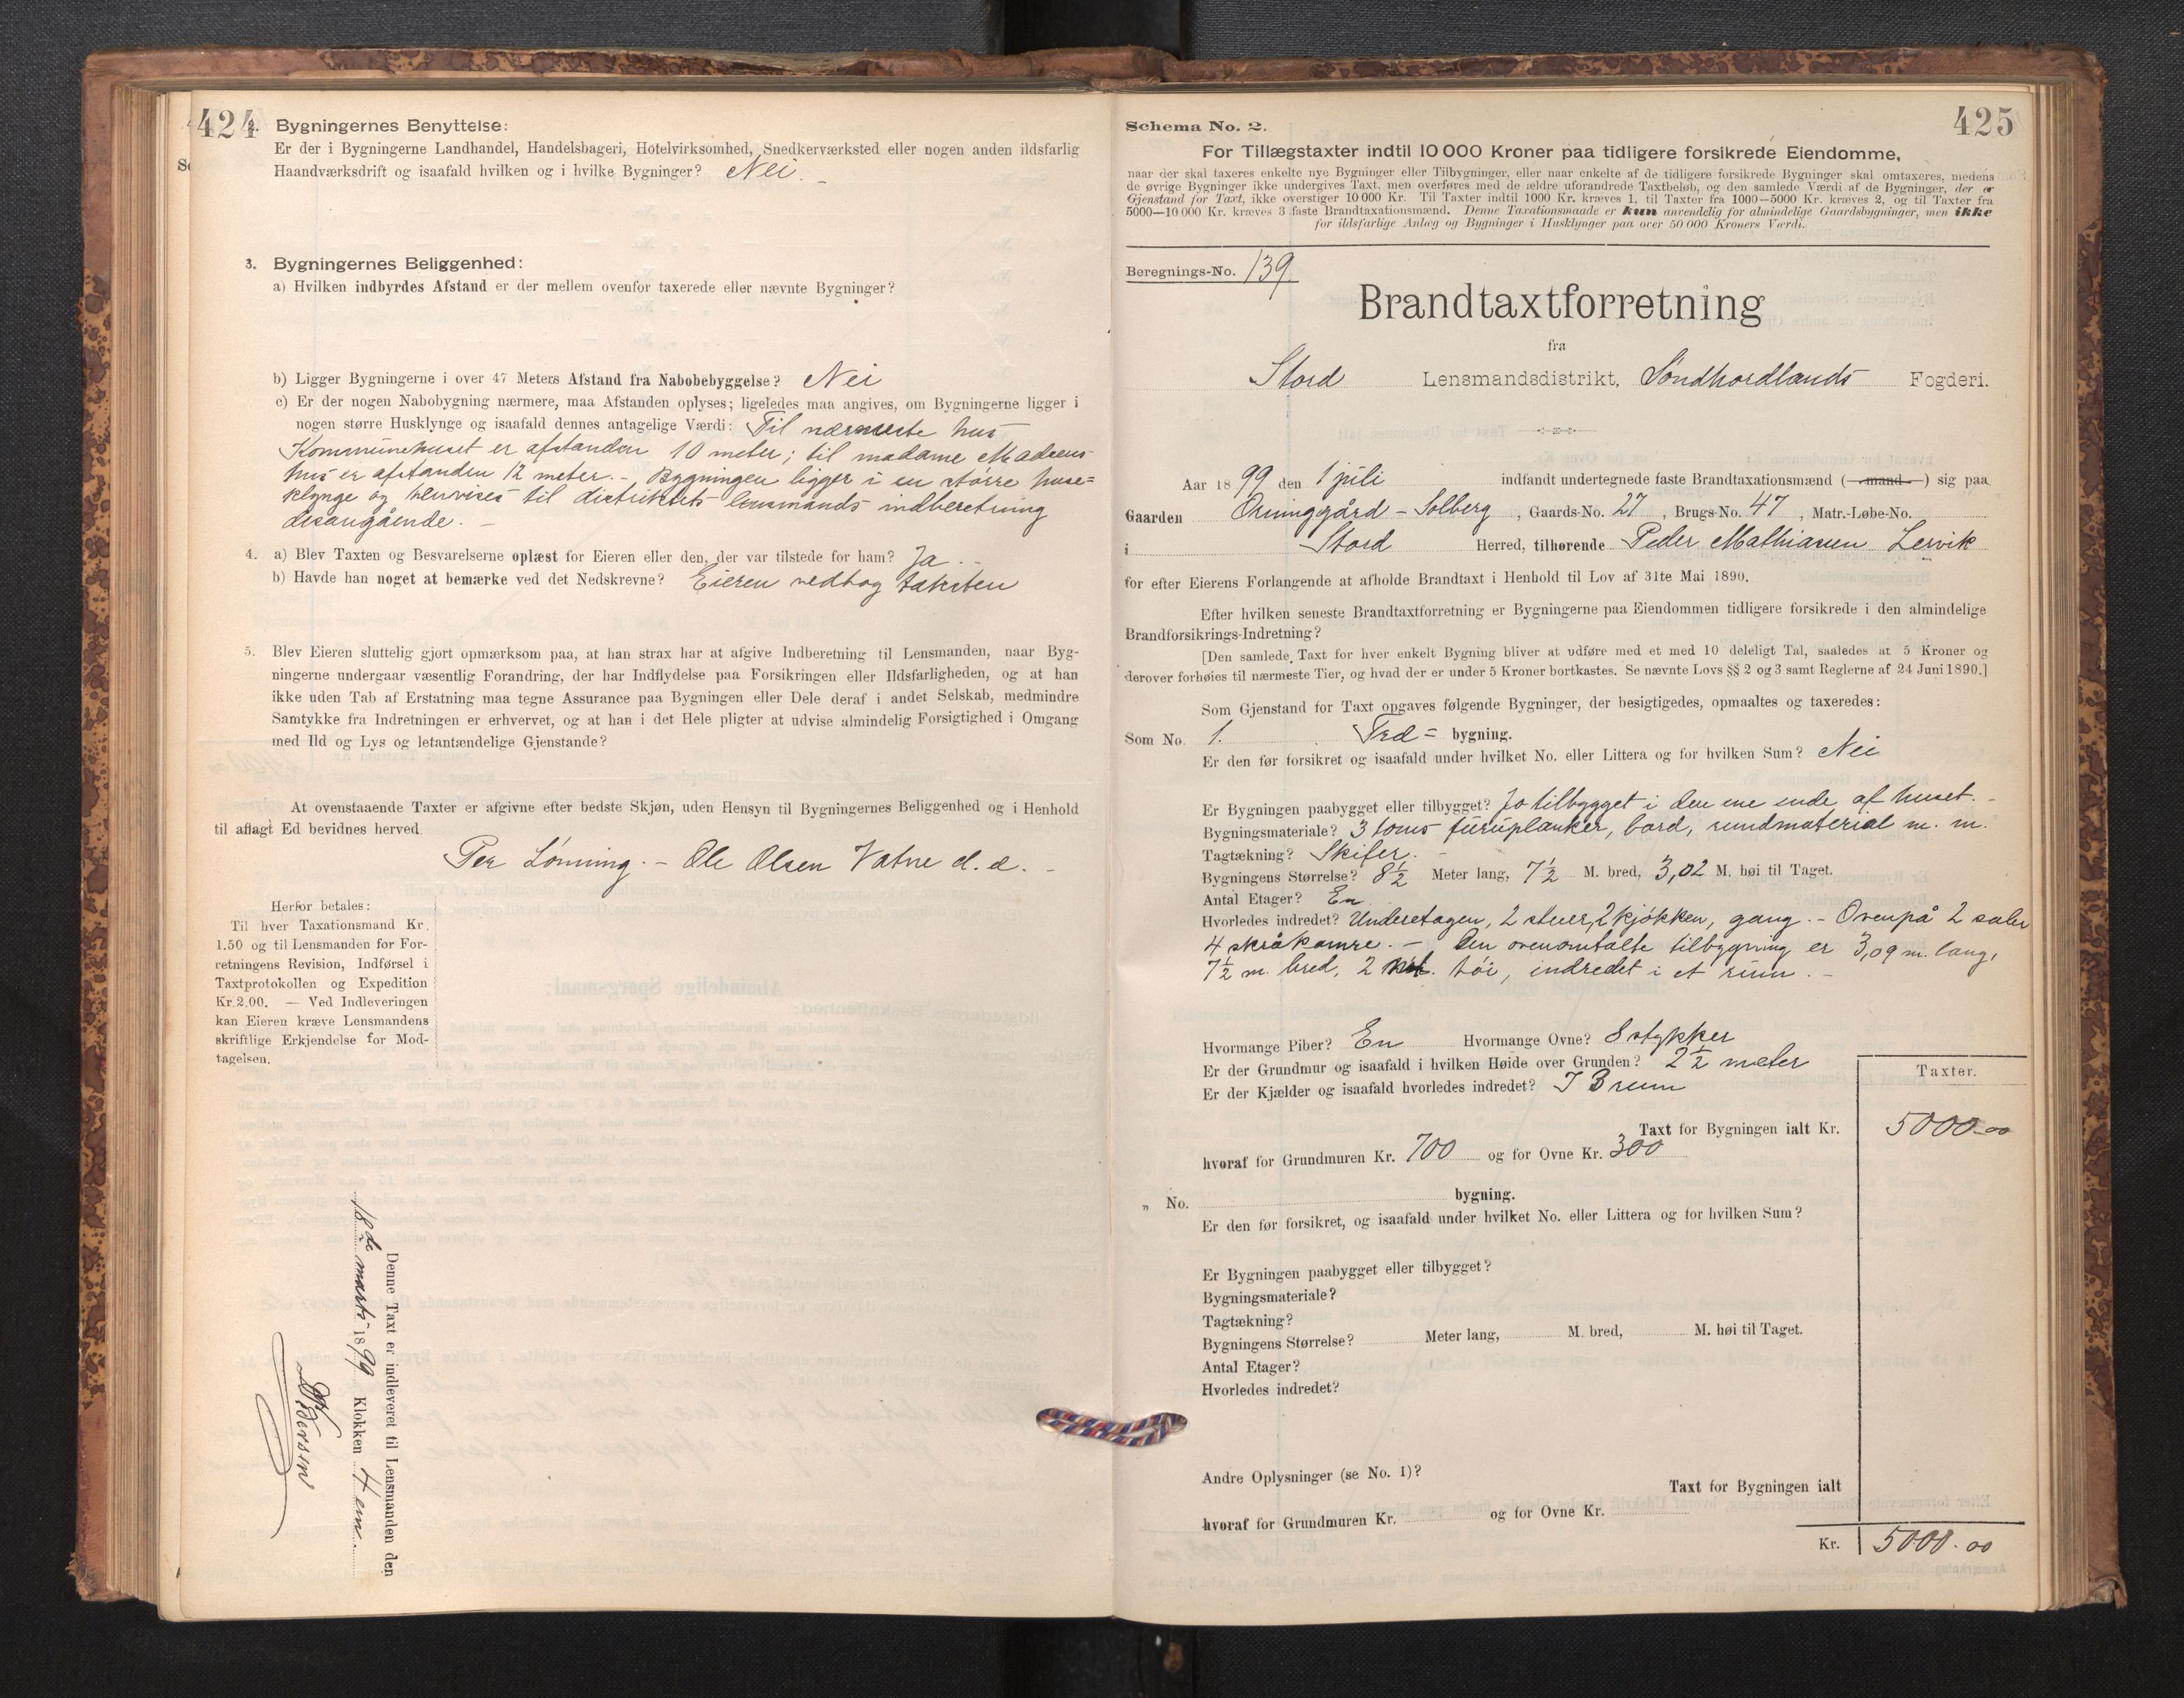 424
2. Bygningernes Benyttelse:
Er der i Bygningerne Landhandel, Handelsbageri, Hotelvirksomhed, Snedkerværksted eller nogen anden ildsfarlig
Haandværksdrift og isaafald hvilken og i hvilke Bygninger? Nei. -
3. Bygningernes Beliggenhed:
a) Hvilken indbyrdes Afstand er der mellem ovenfor taxerede eller nævnte Bygninger?
b) Ligger Bygningerne i over 47 Meters Afstand fra Nabobebyggelse? Nei
c) Er der nogen Nabobygning nærmere, maa Afstanden oplyses; ligeledes maa angives, om Bygningerne ligger i
nogen større Husklynge og isaafald dennes antagelige Værdi: Til nærmeste hus
Kommunehuset er afstanden 10 meter; til madame Madsens
hus er afstanden 12 meter. - Bygningen ligger i en större huse=
klynge og henvises til distriktets lensmands indberetning
desangående. -
4. a) Blev Taxten og Besvarelserne oplæst for Eieren eller den, der var tilstede for ham? Ja. -
b) Havde han noget at bemærke ved det Nedskrevne? Eieren vedtog taksten
5. Blev Eieren sluttelig gjort opmærksom paa, at han strax har at afgive Indberetning til Lensmanden, naar Byg-
ningerne undergaar væsentlig Forandring, der har Indflydelse paa Forsikringen eller Ildsfarligheden, og at han
ikke uden Tab af Erstatning maa tegne Assurance paa Bygningen eller Dele deraf i andet Selskab, medmindre
Samtykke fra Indretningen er erhvervet, og at han i det Hele pligter at udvise almindelig Forsigtighed i Omgang
med Ild og Lys og letantændelige Gjenstande?
At ovenstaaende Taxter er afgivne efter bedste Skjøn, uden Hensyn til Bygningernes Beliggenhed og i Henhold
til aflagt Ed bevidnes herved.
Per Lönning. - Ole Olsen Vatne d. e. -
Herfor betales:
Til hver Taxationsmand Kr.
1.50 og til Lensmanden for For-
retningens Revision, Indførsel i
Taxtprotokollen og Expedition
Kr. 2.00. — Ved Indleveringen
kan Eieren kræve Lensmandens
skriftlige Erkjendelse for Mod-
tagelsen.
Denne Taxt er indleveret til Lensmanden den
18de marts 1899 Klokken 4 em.
425
Schema No. 2.
For Tillægstaxter indtil 10 000 Kroner paa tidligere forsikrede Eiendomme,
naar der skal taxeres enkelte nye Bygninger eller Tilbygninger, eller naar enkelte af de tidligere forsikrede Bygninger skal omtaxeres, medens
de øvrige Bygninger ikke undergives Taxt, men overføres med de ældre uforandrede Taxtbeløb, og den samlede Værdi af de Bygninger, der er
Gjenstand for Taxt, ikke overstiger 10 000 Kr. Til Taxter indtil 1000 Kr. kræves 1, til Taxter fra 1000—5000 Kr. kræves 2, og til Taxter fra
5000—10 000 Kr. kræves 3 faste Brandtaxationsmænd. Denne Taxationsmaade er kun anvendelig for almindelige Gaardsbygninger, men ikke
for ildsfarlige Anlæg og Bygninger i Husklynger paa over 50 000 Kroners Værdi.
Beregnings-No. 139
Brandtaxtforretning
fra
Stord Lensmandsdistrikt, Söndhordlands Fogderi.
Aar 1899 den 1 juli indfandt undertegnede faste Brandtaxationsmænd (-mand-) sig paa
Gaarden Orninggård - Solberg, Gaards-No. 27, Brugs-No. 47, Matr.-Løbe-No.
i Stord Herred, tilhørende Peder Mathiasen Lervik
for efter Eierens Forlangende at afholde Brandtaxt i Henhold til Lov af 31te Mai 1890.
Efter hvilken seneste Brandtaxtforretning er Bygningerne paa Eiendommen tidligere forsikrede i den almindelige
Brandforsikrings-Indretning?
[Den samlede Taxt for hver enkelt Bygning bliver at udføre med et med 10 deleligt Tal, saaledes at 5 Kroner og
derover forhøies til nærmeste Tier, og hvad der er under 5 Kroner bortkastes. Se nævnte Lovs §§ 2 og 3 samt Reglerne af 24 Juni 1890.]
Som Gjenstand for Taxt opgaves følgende Bygninger, der besigtigedes, opmaaltes og taxeredes:
Som No. 1. Træ= bygning.
Er den før forsikret og isaafald under hvilket No. eller Littera og for hvilken Sum? Nei
Er Bygningen paabygget eller tilbygget? Jo tilbygget i den ene ende af huset. -
Bygningsmateriale? 3 toms furuplanker, bord, rundmaterial m. m.
Tagtækning? Skifer. -
Bygningens Størrelse? 8½ Meter lang, 7½ M. bred, 3,02 M. høi til Taget.
Antal Etager? En
Hvorledes indredet? Underetagen, 2 stuer, 2 kjökken, gang. - Ovenpå 2 saler
4 skråkamre. - Den ovenomtalte tilbygning er 3,09 m. lang,
7½ m. bred, 2 höi, indredet i et rum. -
Hvormange Piber? En Hvormange Ovne? 8 stykker
Er der Grundmur og isaafald i hvilken Høide over Grunden? 2½ meter
Er der Kjælder og isaafald hvorledes indredet? I 3 rum
Taxter.
Taxt for Bygningen ialt Kr. 5000-00
hvoraf for Grundmuren Kr. 700 og for Ovne Kr. 300
„ No. bygning.
Er den før forsikret, og isaafald under hvilket No. eller Littera og for hvilken Sum?
Er Bygningen paabygget eller tilbygget?
Bygningsmateriale?
Tagtækning?
Bygningens Størrelse? Meter lang, M. bred, M. høi til Taget.
Antal Etager?
Hvorledes indredet?
Andre Oplysninger (se No. 1)?
Taxt for Bygningen ialt
hvoraf for Grundmuren Kr. og for Ovne Kr.
Kr. 5000.00